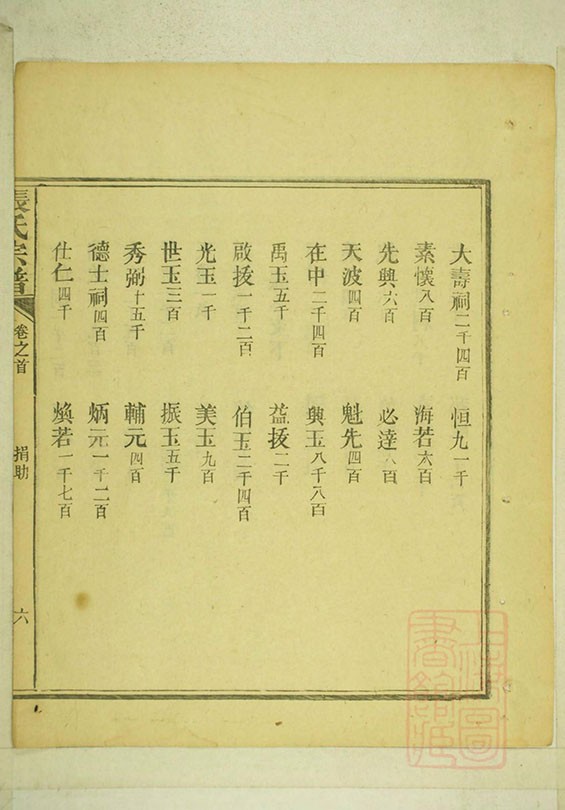 大壽祠二千四百　恒九一千
素懷八百　海若六百
先興六百　必達八百
天波四百　魁先四百
在中二千四百　興玉八千八百
禹玉五千　益援二千
啟援一千二百　伯玉二千四百
光玉一千　美玉九百
世玉三百　振玉五千
秀弼十五千　輔元四百
德士祠四百　炳元一千二百
仕仁四千　煥若一千七百
張氏宗譜　卷之首　捐助　六